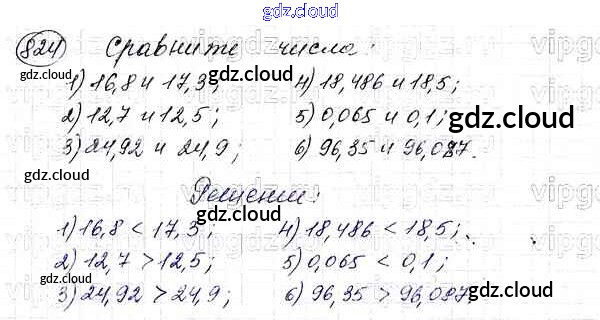 gdz.cloud
824 Сравните числа:
1) 16,8 и 17,3; 4) 18,486 и 18,5;
2) 12,7 и 12,5; 5) 0,065 и 0,1;
3) 24,92 и 24,9; 6) 96,35 и 96,087.
Решение:
1) 16,8 < 17,3; 4) 18,486 < 18,5;
2) 12,7 > 12,5; 5) 0,065 < 0,1;
3) 24,92 > 24,9; 6) 96,35 > 96,087.
gdz.cloud
gdz.cloud
gdz.cloud
gdz.cloud
gdz.cloud
gdz.cloud
gdz.cloud
gdz.cloud